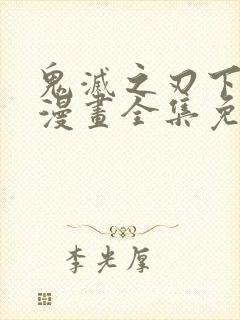 鬼滅之刃下
漫畫全集免
李光厚